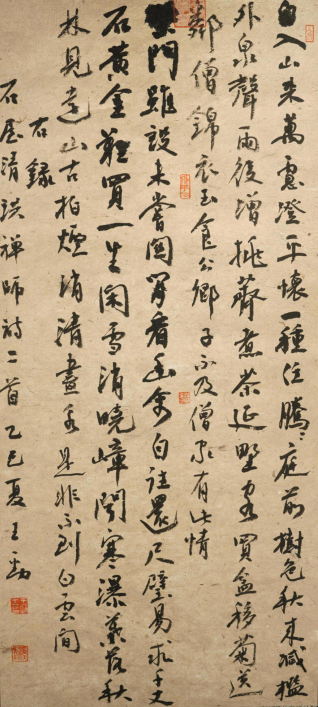 自入山來萬慮澄平懷一種任騰騰庭前樹色秋來減檻
外泉聲雨後增挑薺煮茶延野客買盆移菊送
鄰僧錦衣玉食公卿子不及僧家有此情
柴門雖設未嘗關閒看幽禽自往還尺璧易求千丈
石黃金難買一生閑雪消曉嶂聞寒瀑葉落秋
林見遠山古柏煙消清晝永是非不到白雲間
右錄
石屋清珙禪師詩二首乙巳夏王